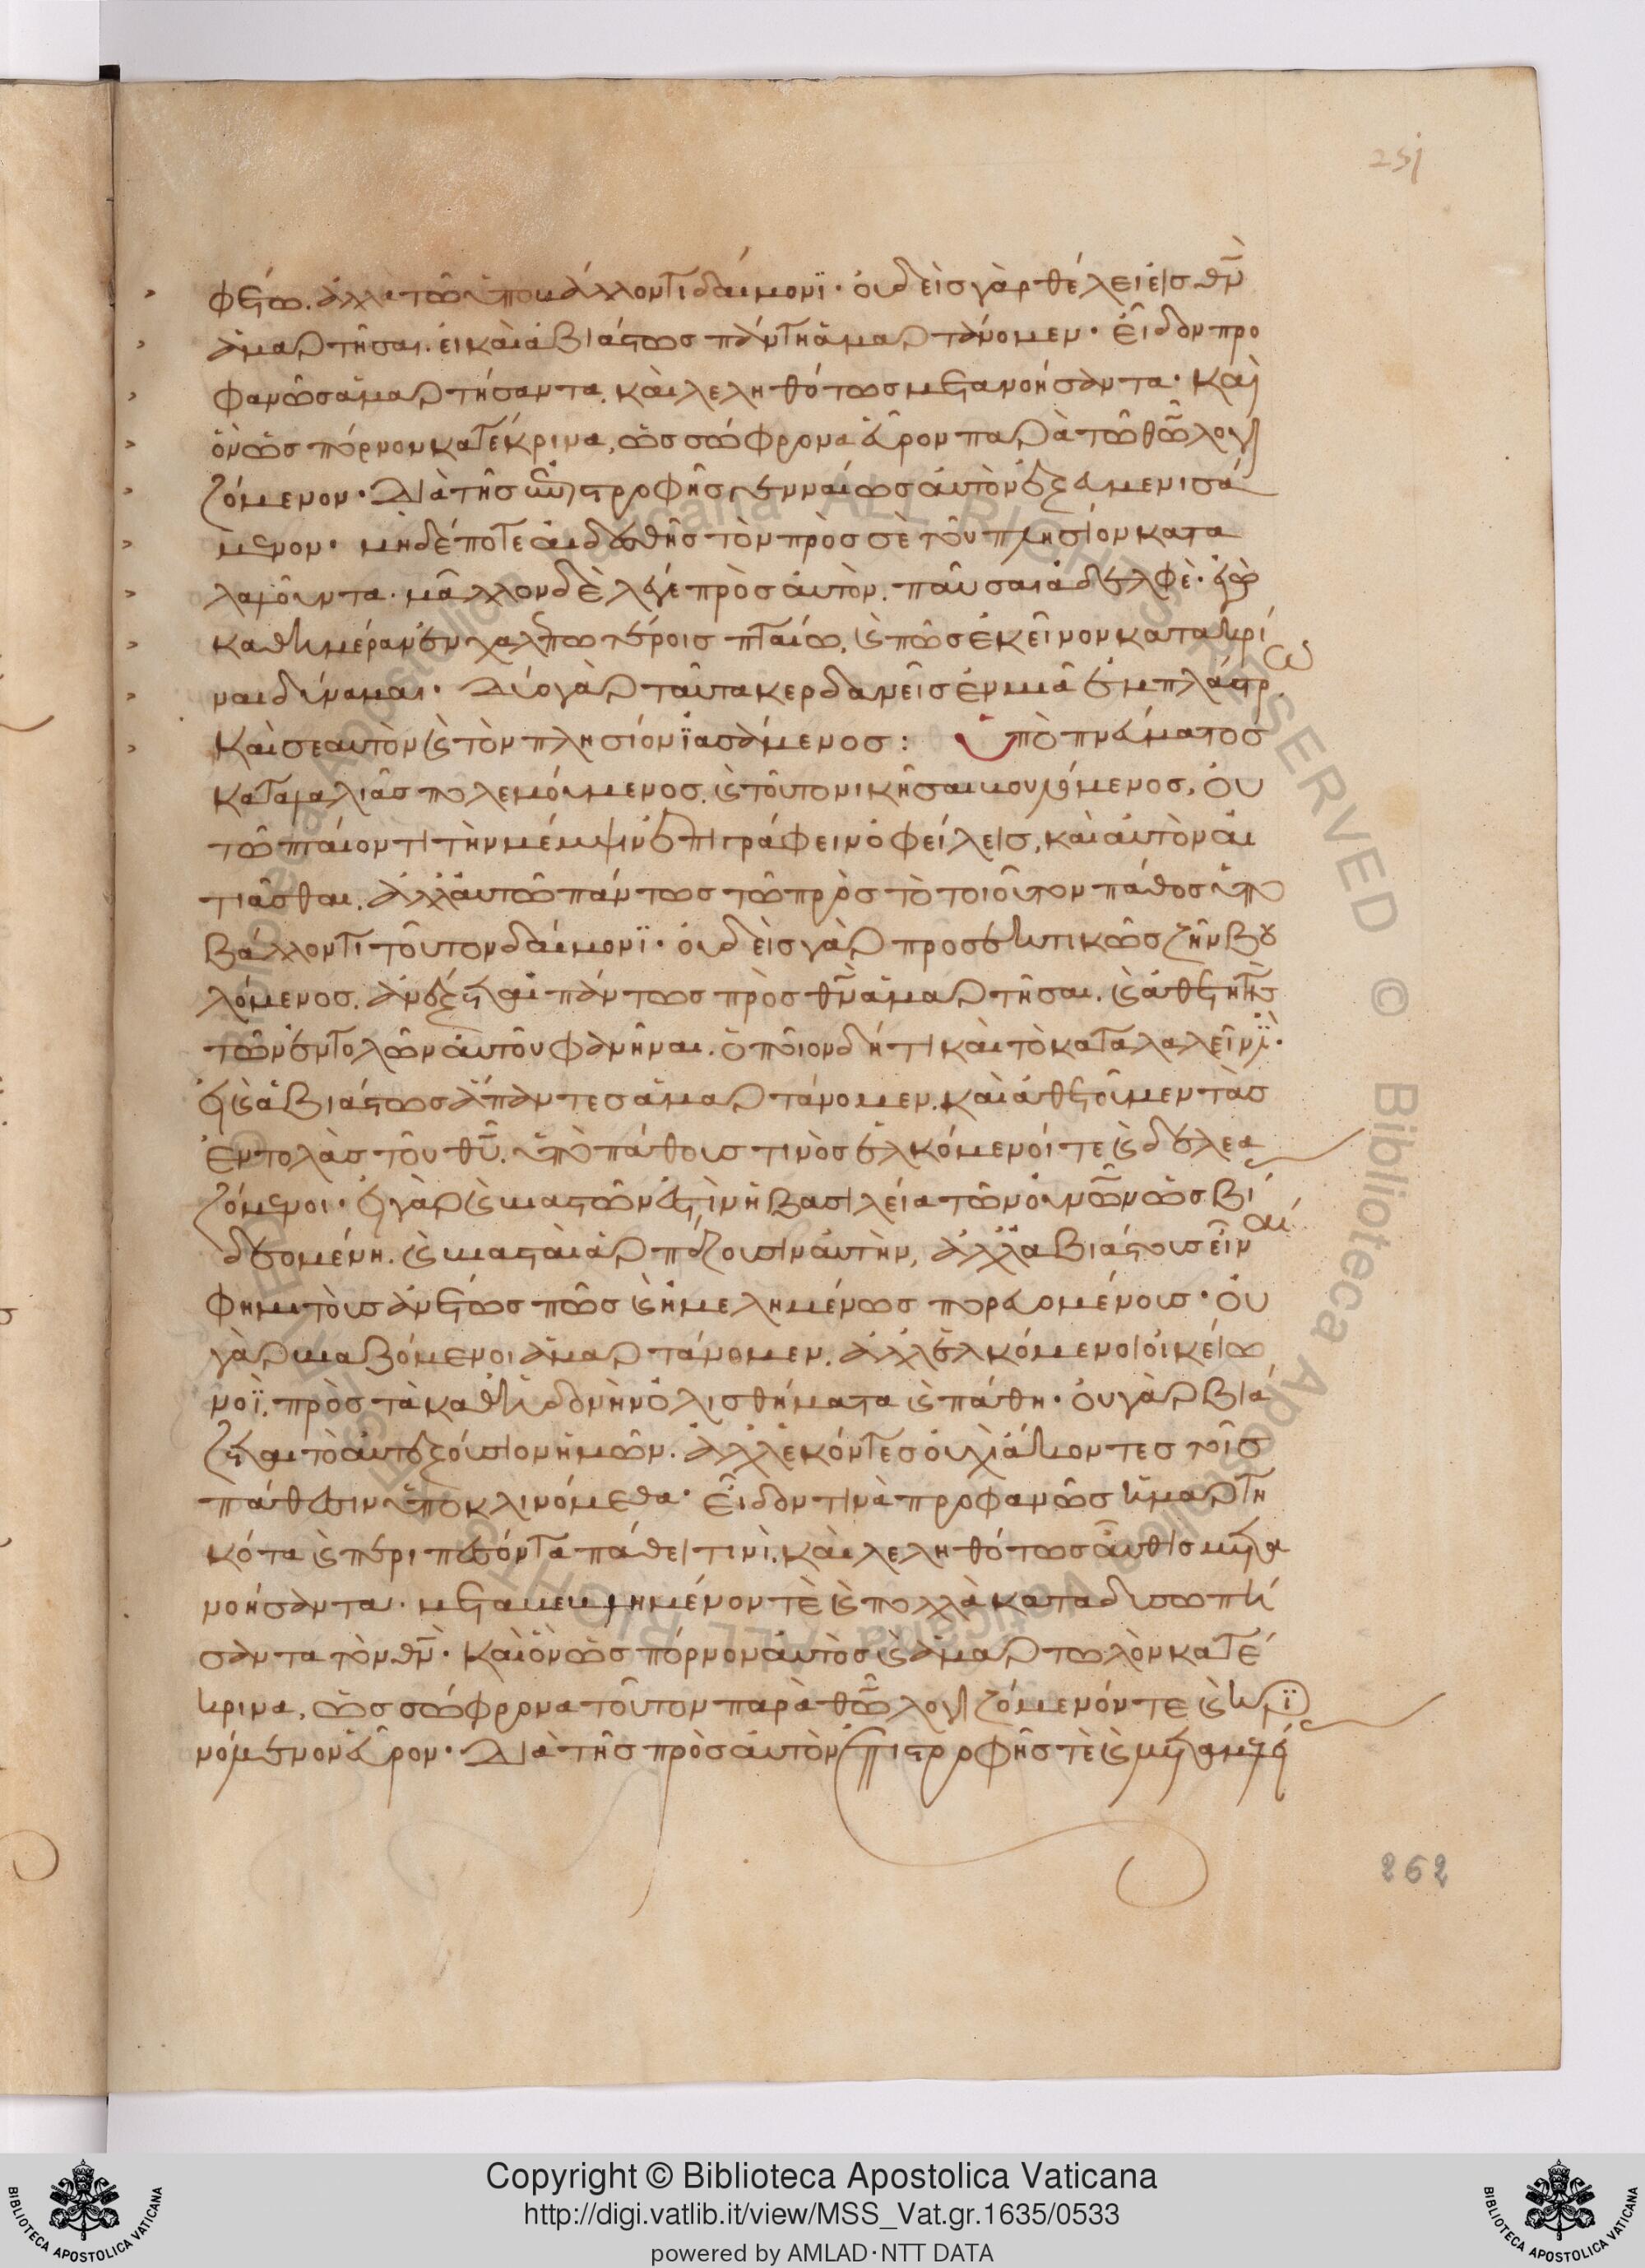 251
φέτω. ἀλλὰ τῶ ὑποβάλλοντι δαίμονϊ· οὐδεὶς γὰρ θέλει εἰς θν
ἁμαρτῆσαι. εἰ καὶ ἀβιάστως πάντη ἁμαρτάνομεν· εἶδον προ
φανῶς ἁμαρτήσαντα. καὶ λεληθότως μετανοήσαντα· καὶ
ὃν ὡς πόρνον κατέκρινα, ὡς σώφρονα εὗρον παρὰ τῶ θῶ λογι
ζόμενον· διὰ τῆς ἐπιστροφῆς γνναίως αὐτὸν ἐξευμενισά
μενον· μηδέποτε αἰδεσθῆς τὸν πρὸς σὲ τοῦ πλησίον κατα
λαλοῦντα. μᾶλλον δὲ λέγε πρὸς αὐτὸν. παῦσαι ἀδελφὲ. ἐγὼ
καθημέραν ἐν χαλεπωτέροις πταίω. καὶ πῶς ἐκεῖνον κατακρί
ναι δύναμαι. δύο γὰρ ταῦτα κερδανεῖς ἐν μιᾶ ἐμπλάστρω
καὶ σεαυτὸν καὶ τὸν πλησίον ϊασάμενος: ὑπὸ πνεύματος
καταλαλιᾶς πολεμούμενος. καὶ τοῦτο νικῆσαι βουλόμενος, οὐ
τῶ πταίοντι τὴν μέμψιν ἐπιγράφειν ὀφείλεις, καὶ αὐτὸν αἰ
τιᾶσθαι. ἀλλ' αὐτῶ πάντως τῶ πρὸς τὸ τοιοῦτον πάθος ὑπο
βάλλοντι τοῦτον δαίμονϊ· οὐδεὶς γὰρ προσεκτικῶς ζῆν βου
λόμενος. ἀνέξεται πάντως πρὸς θν ἁμαρτῆσαι. καὶ ἀθετητὴς
τῶν ἐντολῶν αὐτοῦ φανῆναι. ὁποῖον δή τι καὶ τὸ καταλαλεῖν.
εἰ καὶ ἀβιάστως ἅπαντες ἁμαρτάνομεν. καὶ ἀθετοῦμεν τὰς
ἐντολὰς τοῦ θυ. ὑπὸ πάθους τινὸς ἑλκόμενοί τε καὶ δελεα
ζόμενοι· εἰ γὰρ καὶ βιαστῶν ἐστὶν ἡ βασιλεία τῶν οὐνῶν ὡς βι
αζομένη. καὶ βιασταὶ ἁρπάζουσιν αὐτὴν, ἀλλ' ἀβιάστους εἶναί
φημι τοὺς ἀνέτως πῶς καὶ ἠμελημένως πορευομένους· οὐ
γὰρ βιαζόμενοι ἁμαρτάνομεν. ἀλλ' ἑλκόμενοι οἰκείω
νοϊ. πρὸς τὰ καθ' ἡδονὴν ὀλισθήματα καὶ πάθη· οὐ γὰρ βιά
ζεται τὸ αὐτεξούσιον ἡμῶν. ἀλλ' ἑκόντες οὐχὶ ἄκοντες τοῖς
πάθεσιν ὑποκλινόμεθα· εἶδον τινὰ προφανῶς ἡμαρτη
κότα καὶ περιπεσόντα πάθει τινὶ. καὶ λεληθότως αὖθις μετα
νοήσαντα. μεταμεμελημένον τὲ καὶ πολλὰ καταδυσωπή
σαντα τὸν θν· καὶ ὃν ὡς πόρνον αὐτὸς καὶ ἁμαρτωλὸν κατέ
κρινα, ὡς σώφρονα τοῦτον παρὰ θῶ λογιζόμενόν τε καὶ κρϊ
νόμενον εὗρον· διὰ τῆς πρὸς αὐτὸν ἐπιστροφῆς τὲ καὶ μεταμε
262
Copyright © Biblioteca Apostolica Vaticana
http://digi.vatlib.it/view/MSS_Vat.gr.1635/0533
powered by AMLAD·NTT DATA